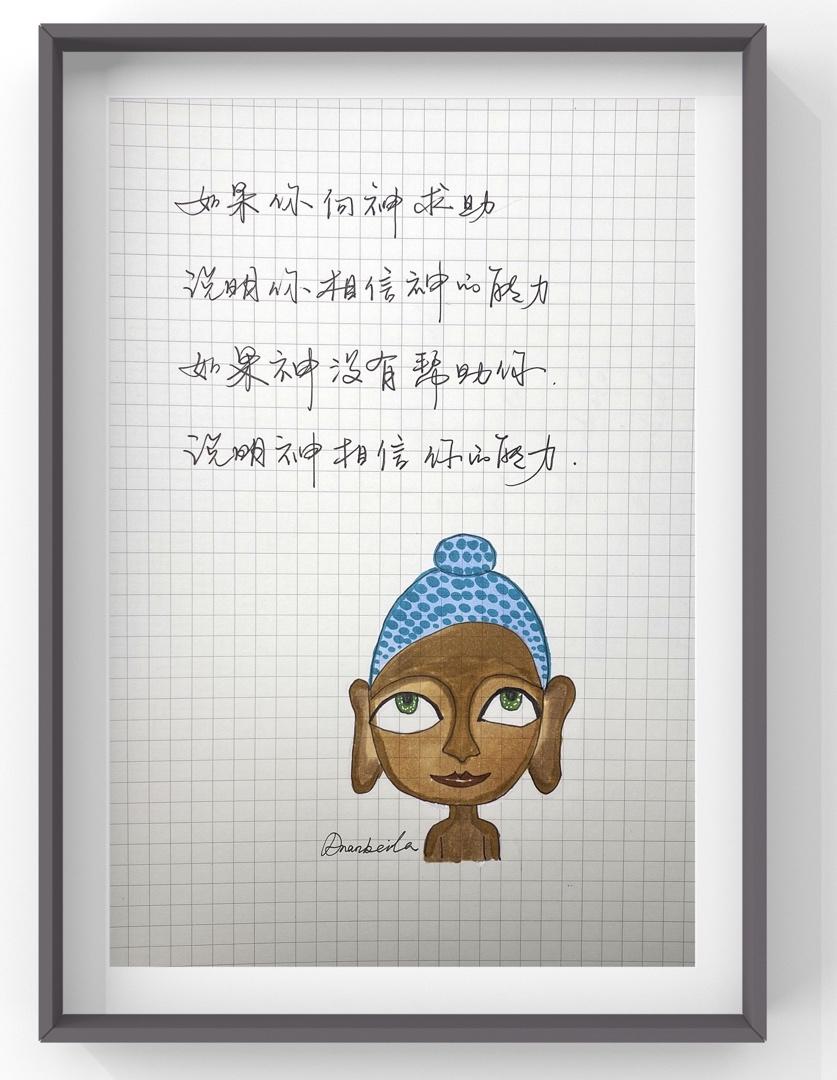 如果你向神求助
说明你相信神的能力
如果神没有帮助你.
说明神相信你的能力.
Ananbeila